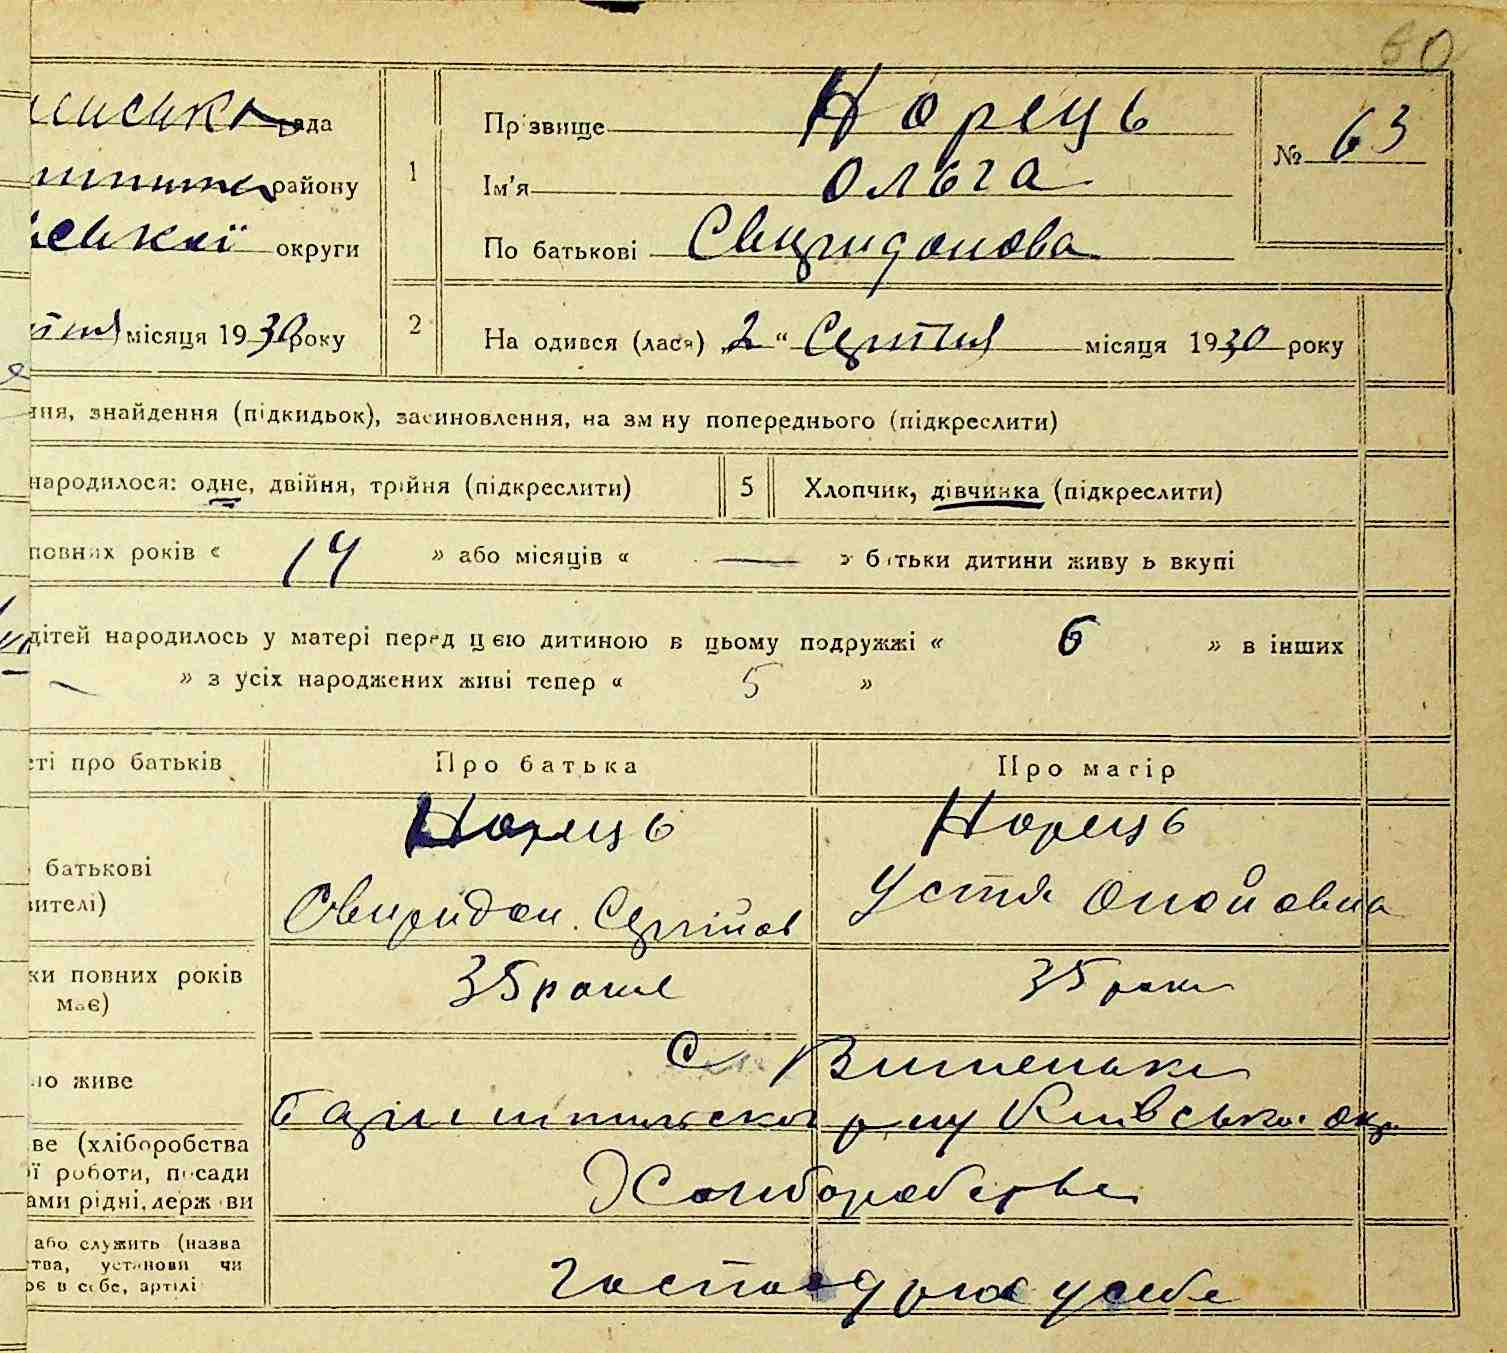 60
рада
Прізвище Норець
№ 63
району
1
Ім'я Ольга
округи
По батькові Свиридонова
місяця 1930 року
2
На одився (лася) „2“ Серпня місяця 1930 року
ння, знайдення (підкидьок), засиновлення, на зм ну попереднього (підкреслити)
народилося: одне, двійня, трійня (підкреслити)
5
Хлопчик, дівчинка (підкреслити)
повних років « 14 » або місяців « — » батьки дитини живу ь вкупі
дітей народилось у матері перед цією дитиною в цьому подружжі « 6 » в інших
— » з усіх народжених живі тепер « 5 »
сті про батьків
Про батька
Про матір
Норець
Норець
батькові
Свиридон Сергійов
Устя
вителі)
ки повних років
має)
35 роки
35 роки
С Вишеньки
но живе
району Київської окр.
ве (хліборобства
ї роботи, посади
ами рідні, держ ви
Хліборобство
або служить (назва
тва, установи чи
ює в себе, артілі
господарює у себе